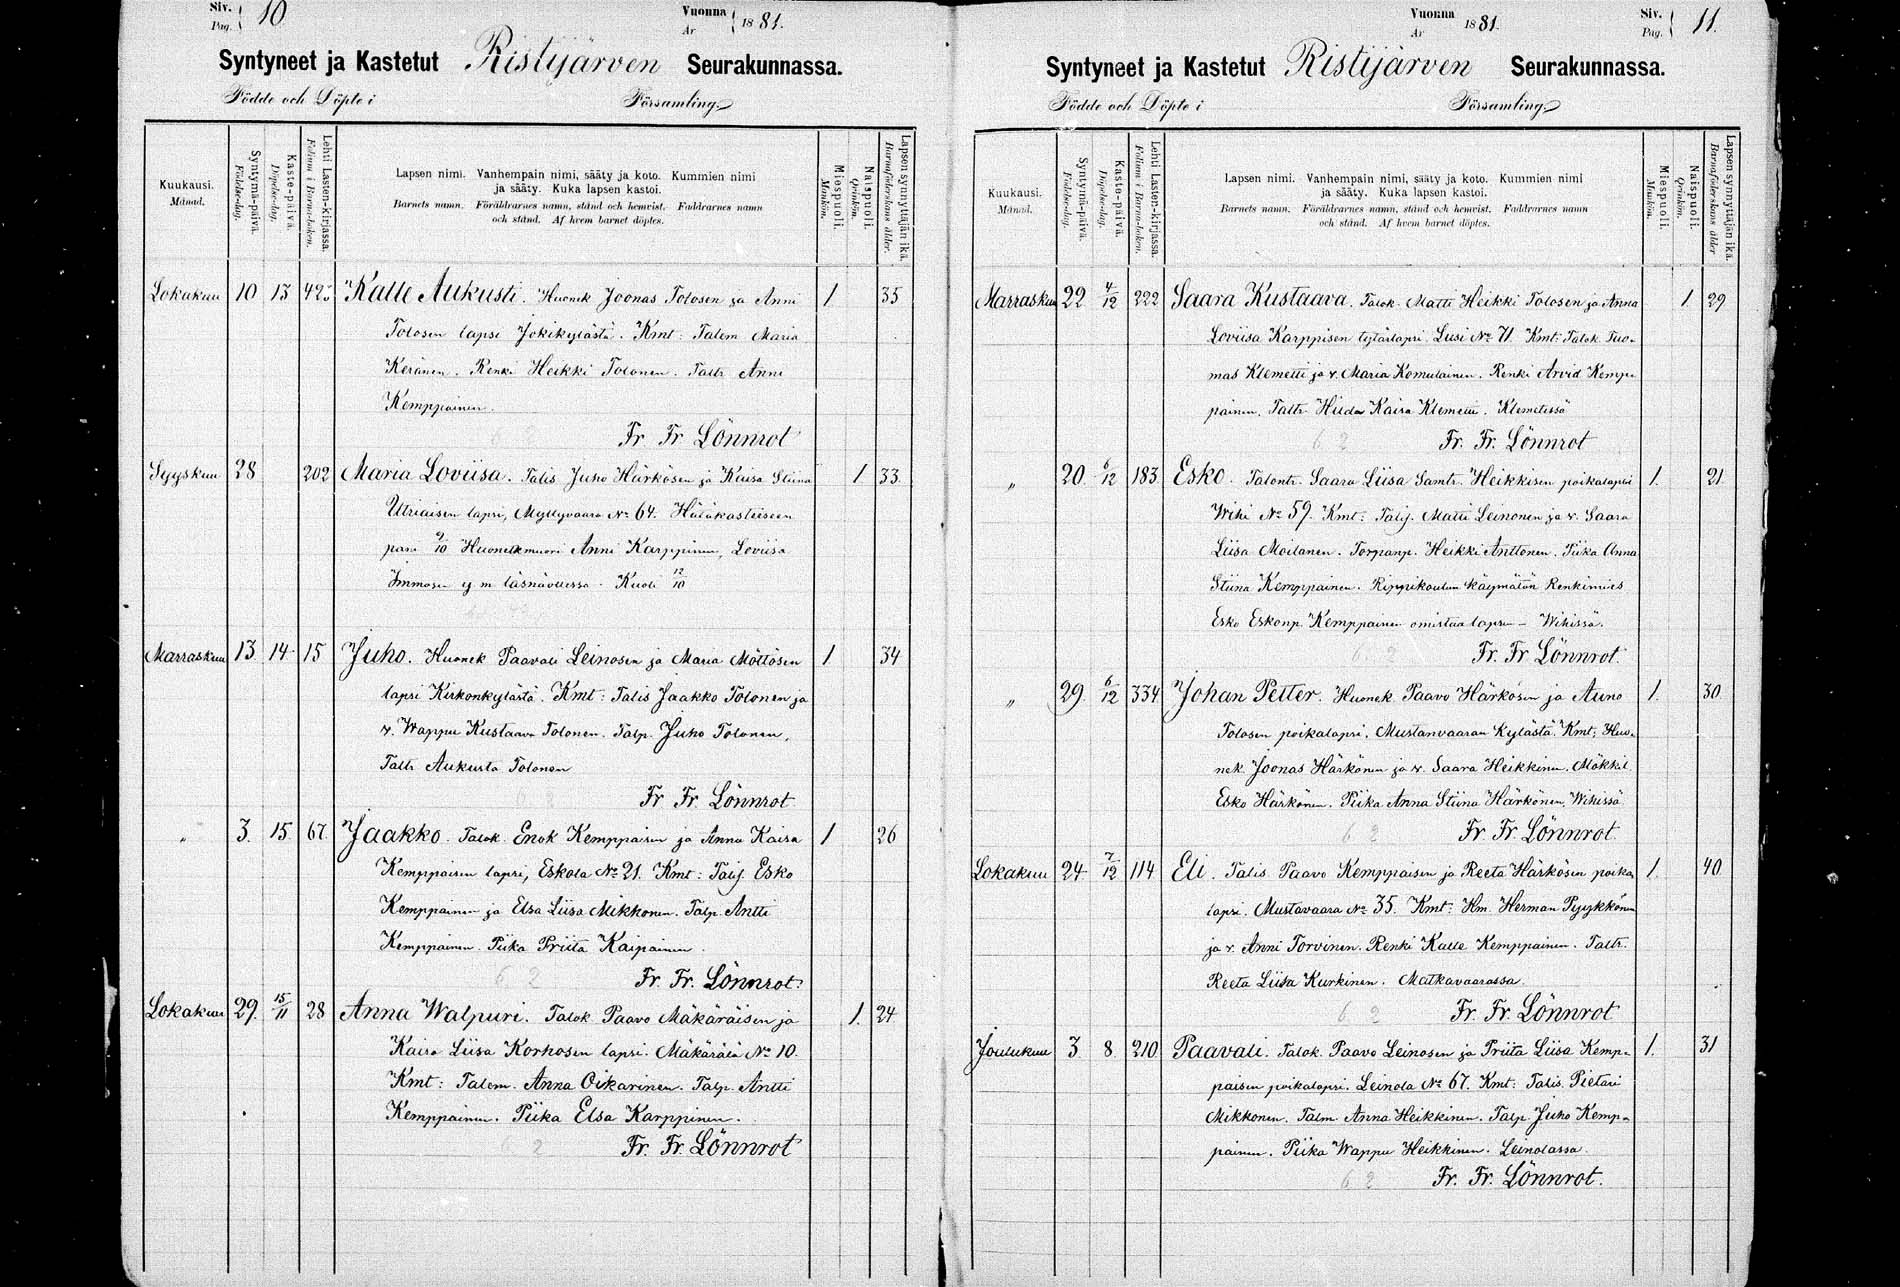 Siv. Pag. 10
Vuonna År 1881.
Syntyneet ja Kastetut Ristijärven Seurakunnassa.
Födde och Döpte i Församling.
Kuukausi. Månad.
Syntymä-päivä. Födelse-dag.
Kaste-päivä. Döpelse-dag.
Lehti Lasten-kirjassa. Folium i Barna-boken.
Lapsen nimi. Vanhempain nimi, sääty ja koto. Kummien nimi
ja sääty. Kuka lapsen kastoi.
Barnets namn. Föräldrarnes namn, stånd och hemvist. Faddrarnes namn
och stånd. Af hvem barnet döptes.
Miespuoli. Mankön.
Naispuoli. Qvinkön.
Lapsen synnyttäjän ikä. Barnaföderskans ålder.
Lokakuu 10 13 425 Kalle Aukusti. Huonek Joonas Tolosen ja Anni 1 35
Tolosen lapsi Jokikylästä. Kmt: Talem Maria
Keränen. Renki Heikki Tolonen. Taltr Anni
Kemppainen.
6 2 Fr Fr Lönnrot
Syyskuu 28 202 Maria Loviisa. Talis Juho Härkösen ja Kaisa Stiina 1 33
Utriaisen lapsi, Myllyvaara No 64. Hätäkasteeseen
pani 9/10 Huonekmuori Anni Karppinen, Loviisa
Immosen y m läsnäollessa. Kuoli 12/10
Marraskuu 13 14 15 Juho. Huonek Paavali Leinosen ja Maria Möttösen 1 34
lapsi Kirkonkylästä. Kmt: Talis Jaakko Tolonen ja
v. Wappu Kustaava Tolonen. Talp. Juho Tolonen,
Taltr Aukusta Tolonen
6 2 Fr Fr Lönnrot
" 3. 15. 67. Jaakko. Talok. Enok Kemppaisen ja Anna Kaisa 1 26
Kemppaisen lapsi, Eskola No 21. Kmt: Talij. Esko
Kemppainen ja Elsa Liisa Mikkonen. Talp. Antti
Kemppainen. Piika Priita Kaipainen.
6. 2 Fr. Fr. Lönnrot.
Lokakuu 29. 15/11 28 Anna Walpuri. Talok Paavo Mäkäräisen ja 1. 24
Kaisa Liisa Korhosen lapsi. Mäkärälä No 10.
Kmt: Talem. Anna Oikarinen. Talp. Antti
Kemppainen. Piika Elsa Karppinen.
6 2 Fr. Fr. Lönnrot
Vuonna År 1881.
Siv. Pag. 11.
Syntyneet ja Kastetut Ristijärven Seurakunnassa.
Födde och Döpte i Församling.
Kuukausi. Månad.
Syntymä-päivä. Födelse-dag.
Kaste-päivä. Döpelse-dag.
Lehti Lasten-kirjassa. Folium i Barna-boken.
Lapsen nimi. Vanhempain nimi, sääty ja koto. Kummien nimi
ja sääty. Kuka lapsen kastoi.
Barnets namn. Föräldrarnes namn, stånd och hemvist. Faddrarnes namn
och stånd. Af hvem barnet döptes.
Miespuoli. Mankön.
Naispuoli. Qvinkön.
Lapsen synnyttäjän ikä. Barnaföderskans ålder
Marraskuu 22 4/12 222 Saara Kustaava. Talok. Matti Heikki Tolosen ja Anna 1. 29
Loviisa Karppisen tytärlapsi. Lusi No 71. Kmt: Talok. Tuo-
mas Klemetti ja v. Maria Komulainen. Renki Arvid Kemp-
painen. Taltr. Hilda Kaisa Klemetti. Klemetissä
6 2 Fr. Fr. Lönnrot
" 20. 6/12 183. Esko. Talontr. Saara Liisa Samtr. Heikkisen poikalapsi 1. 21.
Wihi No 59. Kmt: Talij. Matti Leinonen ja v. Saara
Liisa Moilanen. Torpanp. Heikki Anttonen. Piika Anna
Stiina Kemppainen. Rippikoulun käymätön Renkimies
Esko Eskonp. Kemppainen omistaa lapsen – Wihissä.
6. 2 Fr. Fr Lönnrot.
" 29. 6/12 334 Johan Petter. Huonek Paavo Härkösen ja Auno 1. 30
Tolosen poikalapsi, Mustanvaaran kylästä. Kmt: Huo-
nek Joonas Härkönen ja v. Saara Heikkinen. Mökkil.
Esko Härkönen. Piika Anna Stiina Härkönen, Wihissä
6 2 Fr. Fr. Lönnrot.
Lokakuu 24 7/12 114 Eli. Talis. Paavo Kemppaisen ja Reeta Härkösen poika- 1. 40
lapsi. Mustavaara No 35. Kmt: Hm. Herman Pyykkönen
ja v. Anni Torvinen. Renki Kalle Kemppainen. Taltr.
Reeta Liisa Kurkinen. Matkavaarassa.
6 2 Fr. Fr. Lönnrot
Joulukuu 3 8 210 Paavali. Talok. Paavo Leinosen ja Priita Liisa Kemp- 1. 31
paisen poikalapsi. Leinola No 67. Kmt: Talis. Pietari
Mikkonen. Talm. Anna Heikkinen. Talp Juho Kemp-
painen. Piika Wappu Heikkinen. Leinolassa.
6 2 Fr. Fr. Lönnrot.